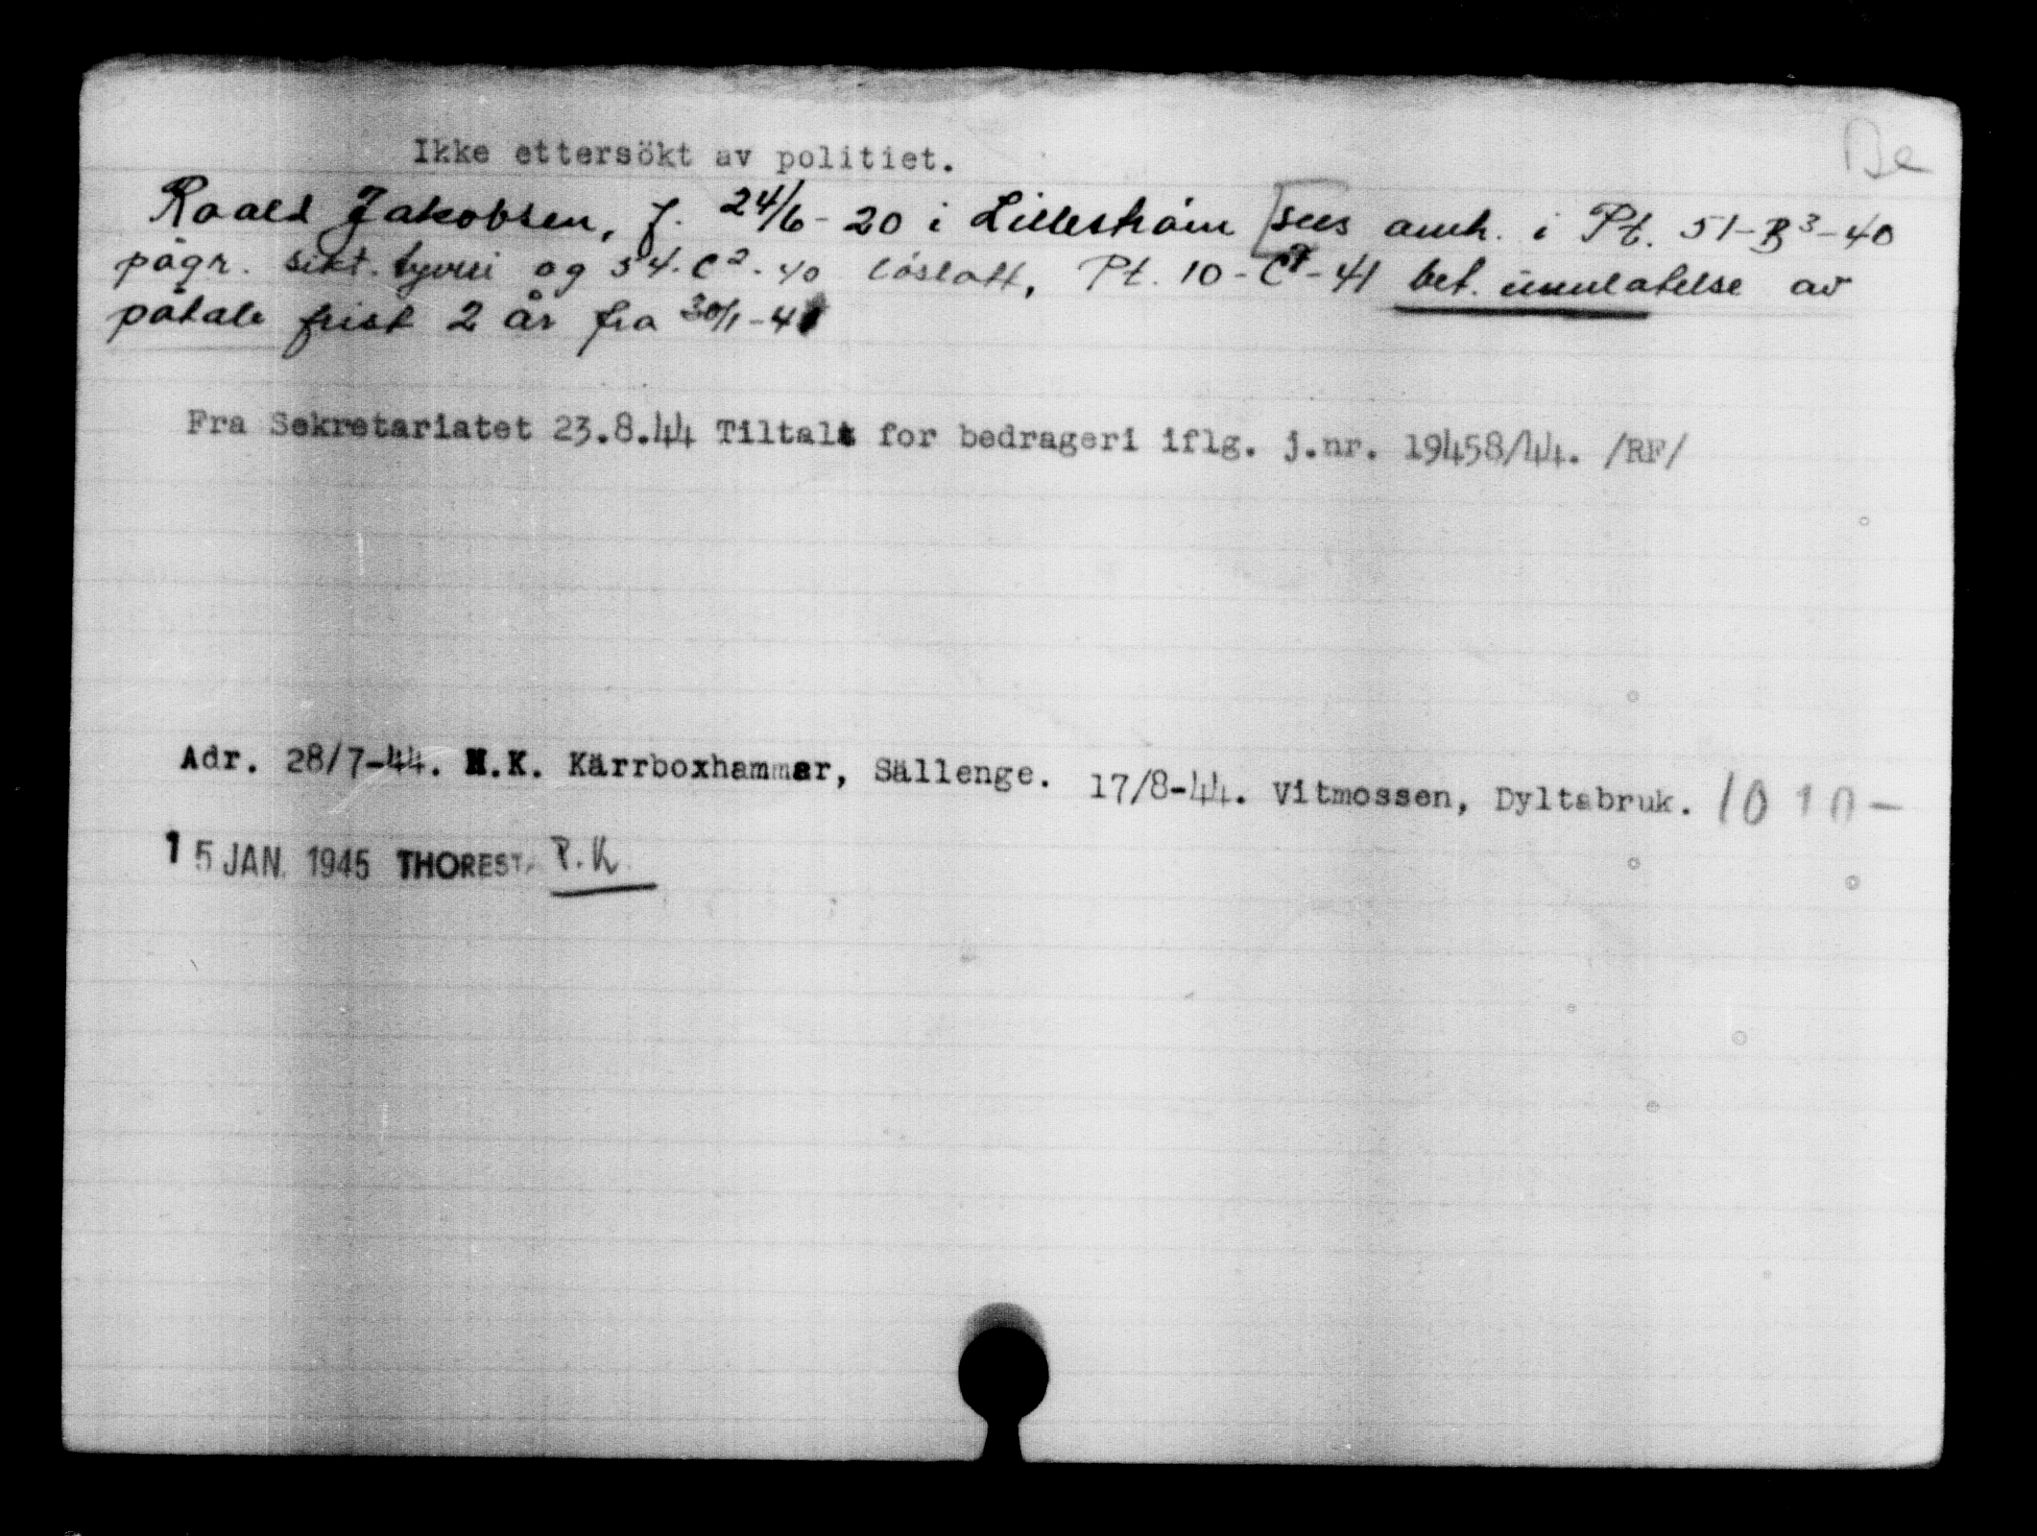 De
Ikke ettersökt av politiet.
Roald Jakobsen, f. 24/6-20 i Lilleström [sees anh. i Pt. 51-B3-40
pågr. sikt. tyveri og 54-C2-40 löslatt, Pt. 10-C1-41 bet. unnlatelse av
påtale frist 2 år fra 30/1-41
Fra Sekretariatet 23.8.44 Tiltalt for bedrageri iflg. j.nr. 19458/44. /RF/
Adr. 28/7-44. M.K. Kärrboxhammar, Sällenge. 17/8-44. Vitmossen, Dyltabruk. 10 10-
15 JAN. 1945 THORESTA P.K.